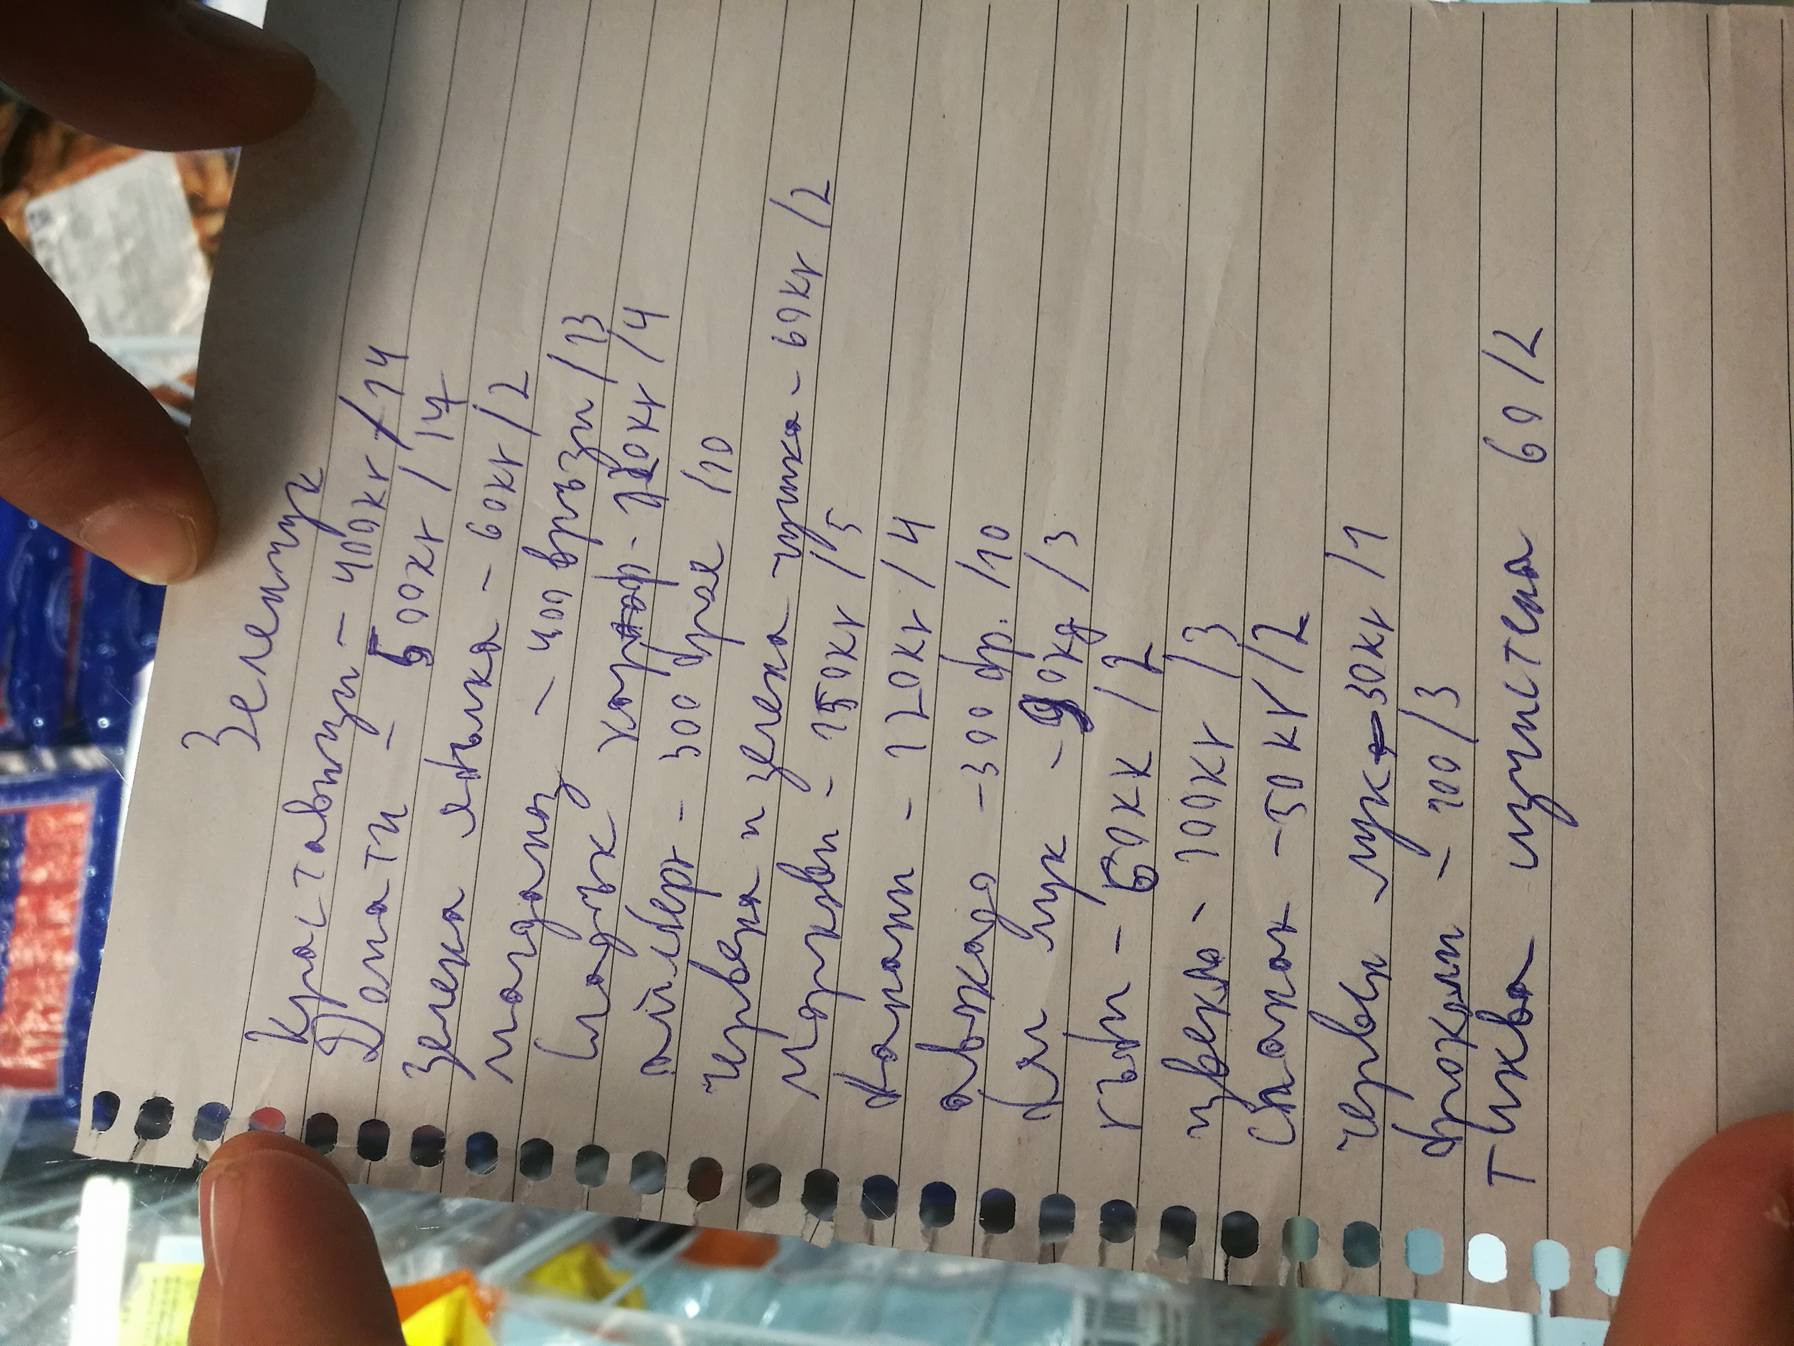 Зеленчук
Краставици - 400кг / 14
Домати - 500кг / 14
Зелена ябълка - 60кг / 2
магданоз - 400 връзки / 13
Сладък картоф - 120кг / 4
айсберг - 300 броя / 10
червена и зелена чушка - 60кг / 2
Моркови - 150кг / 5
банани - 120кг / 4
авокадо - 300 бр. / 10
бял лук - 90кг / 3
гъби - 50кк / 2
цвекло - 100кг / 3
Спанак - 50кг / 2
червен лук - 30кг / 1
броколи - 100 / 3
Тиква чистена 60 / 2